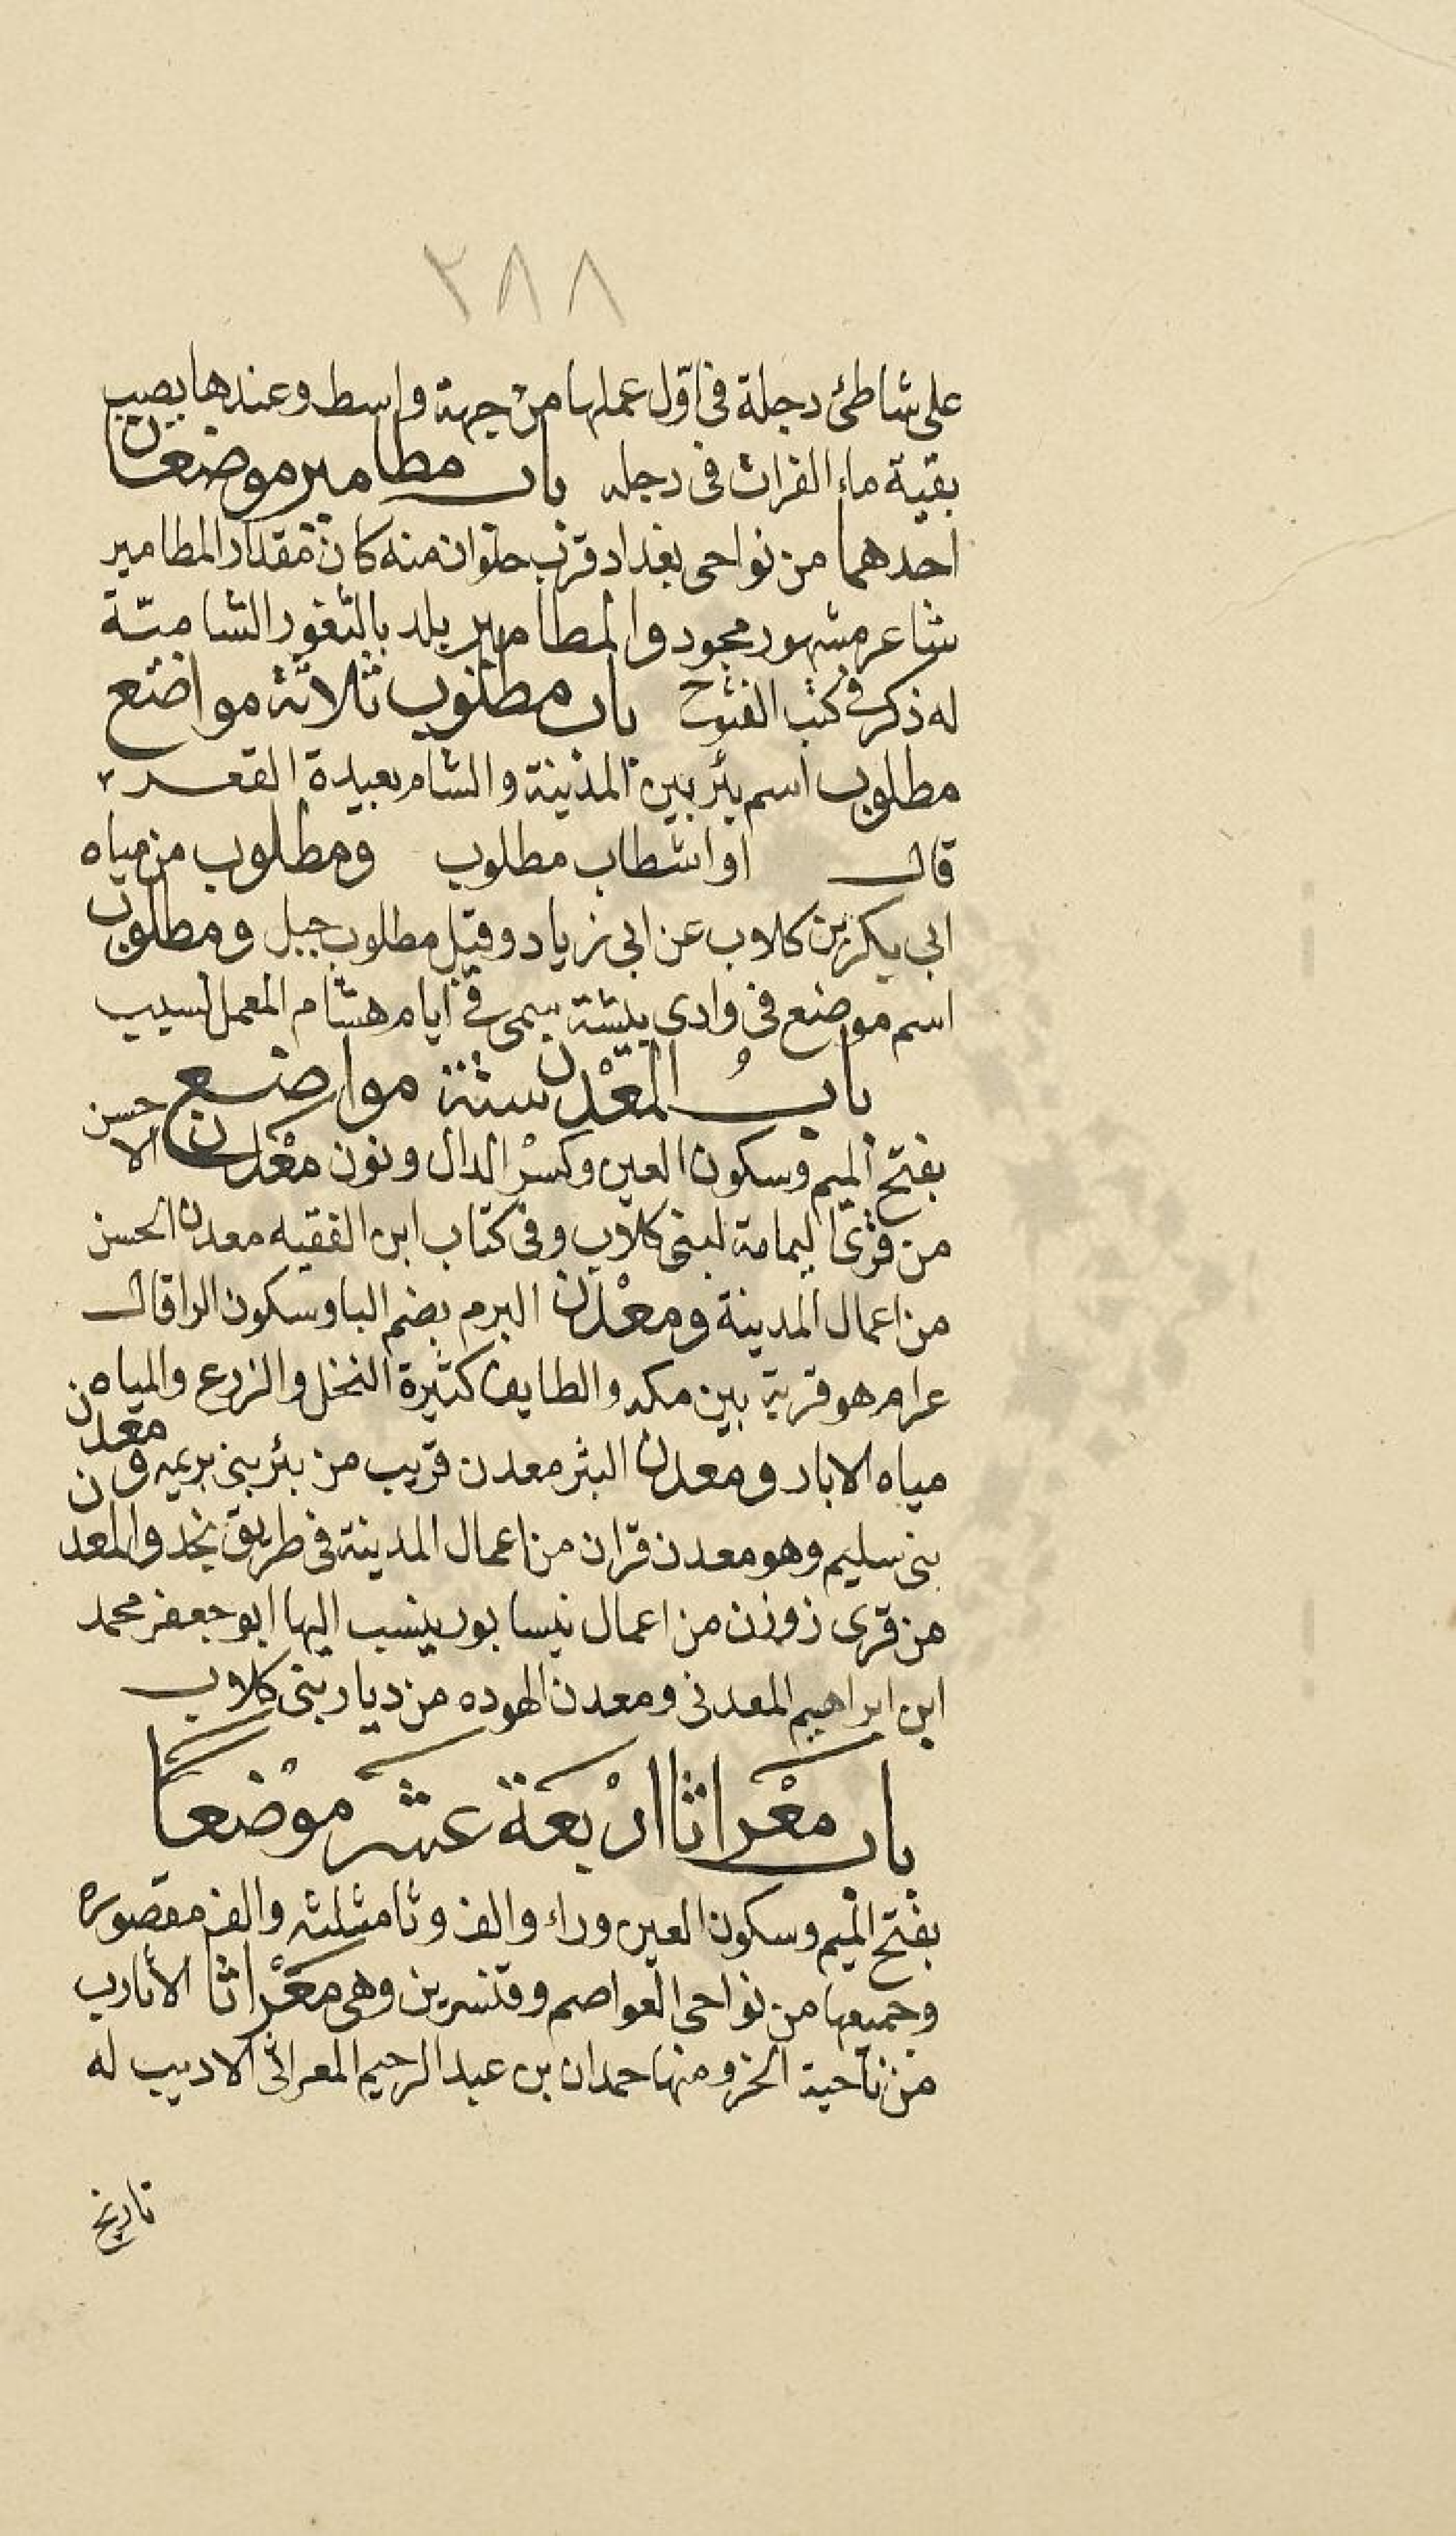 ٢٨٨
على شاطئ دجلة فى اوّل عملها من جهة واسط وعندها يصب
بقية ماء الفرات فى دجله باب مطامير موضعان
احدهما من نواحى بغداد قرب حلوان منه كان مقدار المطامير
شاعر مشهور مجود والمطامير بلد بالثغور الشاميّة
له ذكر فى كتب الفتوح باب مطلوب ثلاثة مواضع
مطلوب اسم بئر بين المدينة والشام بعيدة القعر
قال او اشطاب مطلوب ومطلوب من مياه
ابى بكر بن كلاب عن ابى زياد وقيل مطلوب جبل ومطلوب
اسم موضع فى وادى بيشة سمى فى ايام هشام المعمل لسبب
بابُ المعْدن ستة مواضع
بفتح الميم وسكون العين وكسر الدال ونون معْدن الاحسن
من قرى اليمامة لبنى كلاب وفى كتاب ابن الفقيه معدن الحسن
من اعمال المدينة ومعْدن البرم بضم البا وسكون الرا قال
عرام هو قرية بين مكه والطايف كثيرة النخل والزرع والمياه
مياه الابار ومعدن البئر معدن قريب من بئر بنى بريمه ومعدن
بنى سليم وهو معدن قران من اعمال المدينة فى طريق نجد والمعدن
من قرى زوزن من اعمال نيسابور ينسب اليها ابو جعفر محمد
ابن ابراهيم المعدنى ومعدن الهوده من ديار بنى كلاب
باب معْراثا اربعة عشر موضعًا
بفتح الميم وسكون العين وراء والف وثا مثلثه والف مقصوره
وجميعها من نواحى العواصم وقنسرين وهى معْراثا الأثارب
من ناحية الخزر ومنها حمدان بن عبد الرحيم المعراثى الاديب له
تاريخ